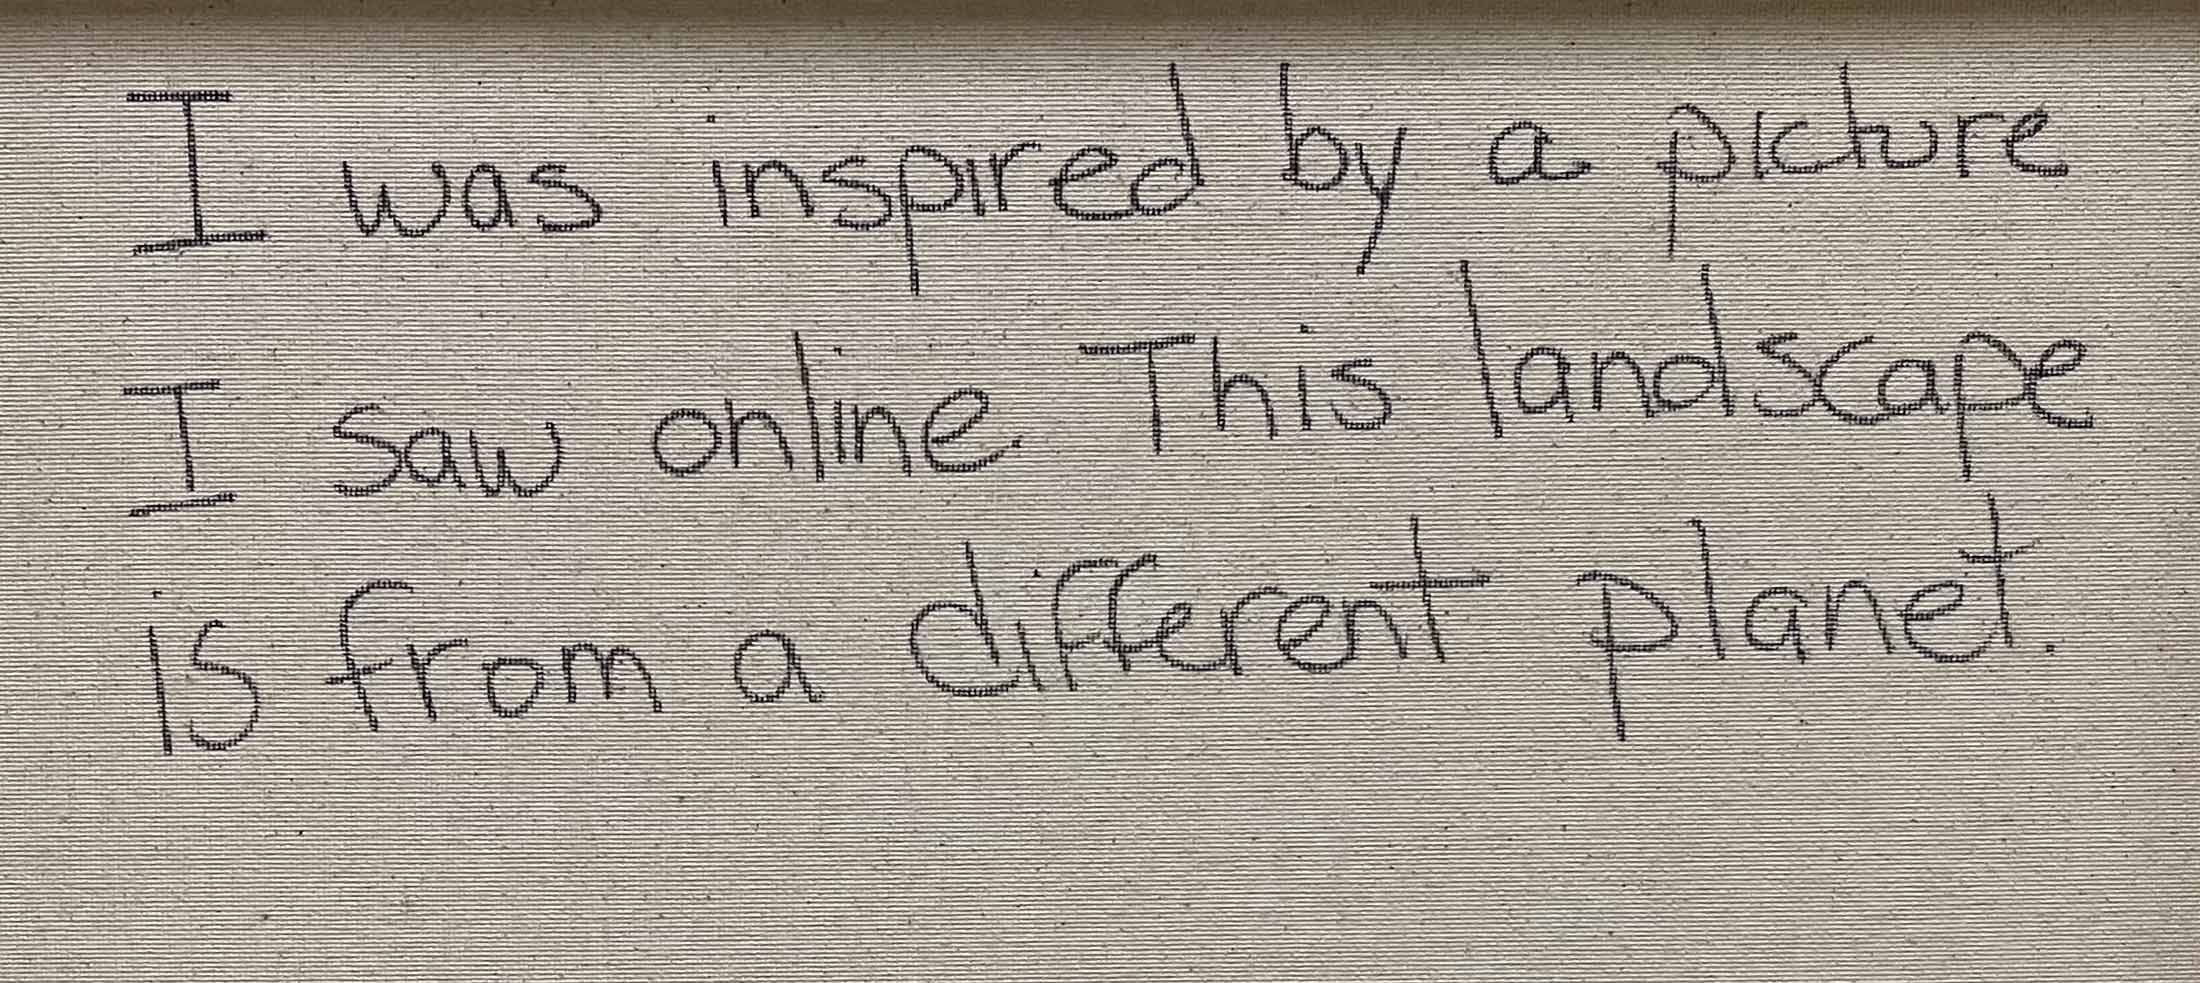 I was inspired by a picture
I saw online. This landscape
is from a different planet.